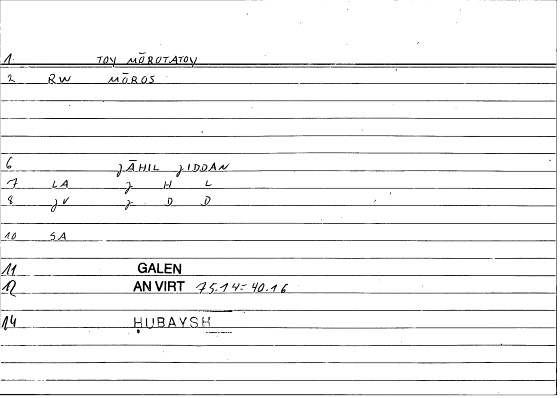 1 TOY MŌROTATOY
2 RW MŌROS
6 ɟĀHIL ɟIDDAN
7 LA ɟ H L
8 ɟV ɟ D D
10 SA
11 GALEN
12 AN VIRT 75.14 = 40.16
14 ḤUBAYSH